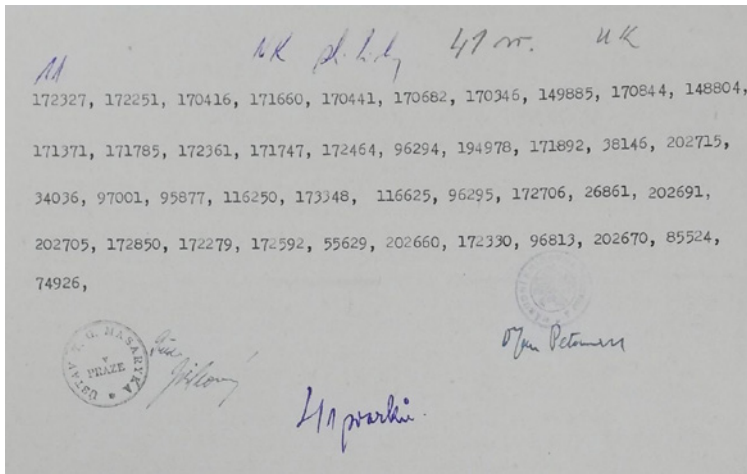 11 NK 41 sv. UK
172327, 172251, 170416, 171660, 170441, 170682, 170346, 149885, 170844, 148804,
171371, 171785, 172361, 171747, 172464, 96294, 194978, 171892, 38146, 202715,
34036, 97001, 95877, 116250, 173348, 116625, 96295, 172706, 26861, 202691,
202705, 172850, 172279, 172592, 55629, 202660, 172330, 96813, 202670, 85524,
74926,
ÚSTAV T. G. MASARYKA
v
PRAZE
41 svazků.